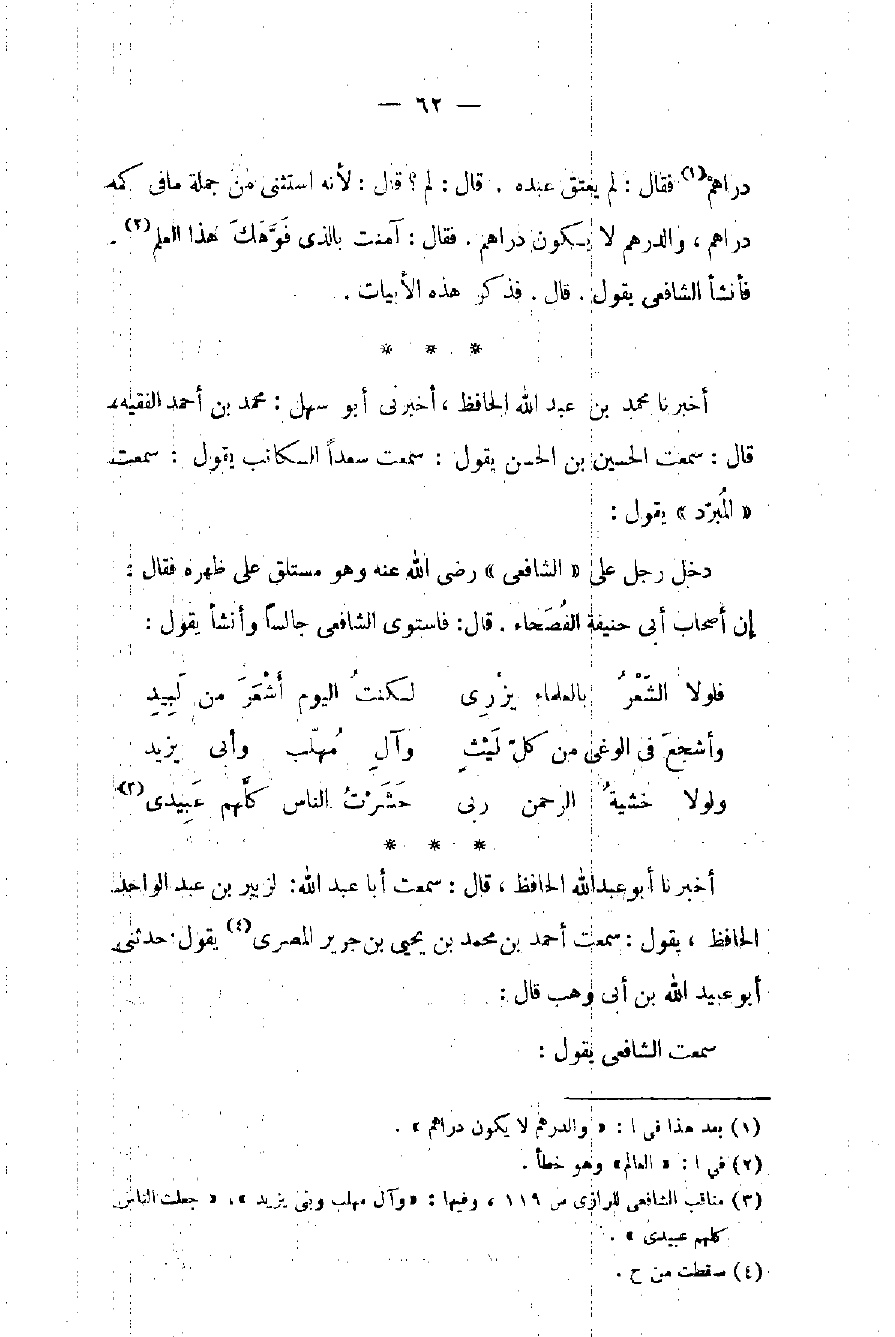 — ٦٢ —
دراهم(١) فقال : لم يعتق عبده . قال : لم ؟ قال : لأنه استثنى من جملة مافى كمه
دراهم ، والدرهم لا يكون دراهم . فقال : آمنت بالذى فَوَّهَكَ هذا العلم(٢) .
فأنشأ الشافعى يقول . قال . فذكر هذه الأبيات .
* * *
أخبرنا محمد بن عبد الله الحافظ ، أخبرنى أبو سهل : محمد بن أحمد الفقيه ،
قال : سمعت الحسين بن الحسن يقول : سمعت سعداً الكاتب يقول : سمعت
« المُبرّد » يقول :
دخل رجل على « الشافعى » رضى الله عنه وهو مستلق على ظهره فقال :
إن أصحاب أبى حنيفة الفُصَحاء . قال : فاستوى الشافعى جالساً وأنشأ يقول :
فلولا الشَعْرُ بالعلماء يزْرِى لكنتُ اليوم أَشْعَرَ من لَبِيدِ
وأشجعَ فى الوغى من كلّ لَيْثٍ وآلِ مُهلّب وأبى يزيد
ولولا خشيةُ الرحمن ربى حَشَرْتُ الناس كلَّهم عَبِيدى(٣)
* * *
أخبرنا أبو عبدالله الحافظ ، قال : سمعت أبا عبد الله : لزبير بن عبد الواحد
الحافظ ، يقول : سمعت أحمد بن محمد بن يحيى بن جرير المصرى(٤) يقول حدثنى
أبو عبيد الله بن أبى وهب قال :
سمعت الشافعى يقول :
(١) بعد هذا فى ا : « والدرهم لا يكون دراهم » .
(٢) فى ا : « العالم » وهو خطأ .
(٣) مناقب الشافعى للرازى س ١١٩ ، وفيها : « وآل مهلب وبنى يزيد » . « جعلت الناس
كلهم عبيدى » .
(٤) سقطت من ح .